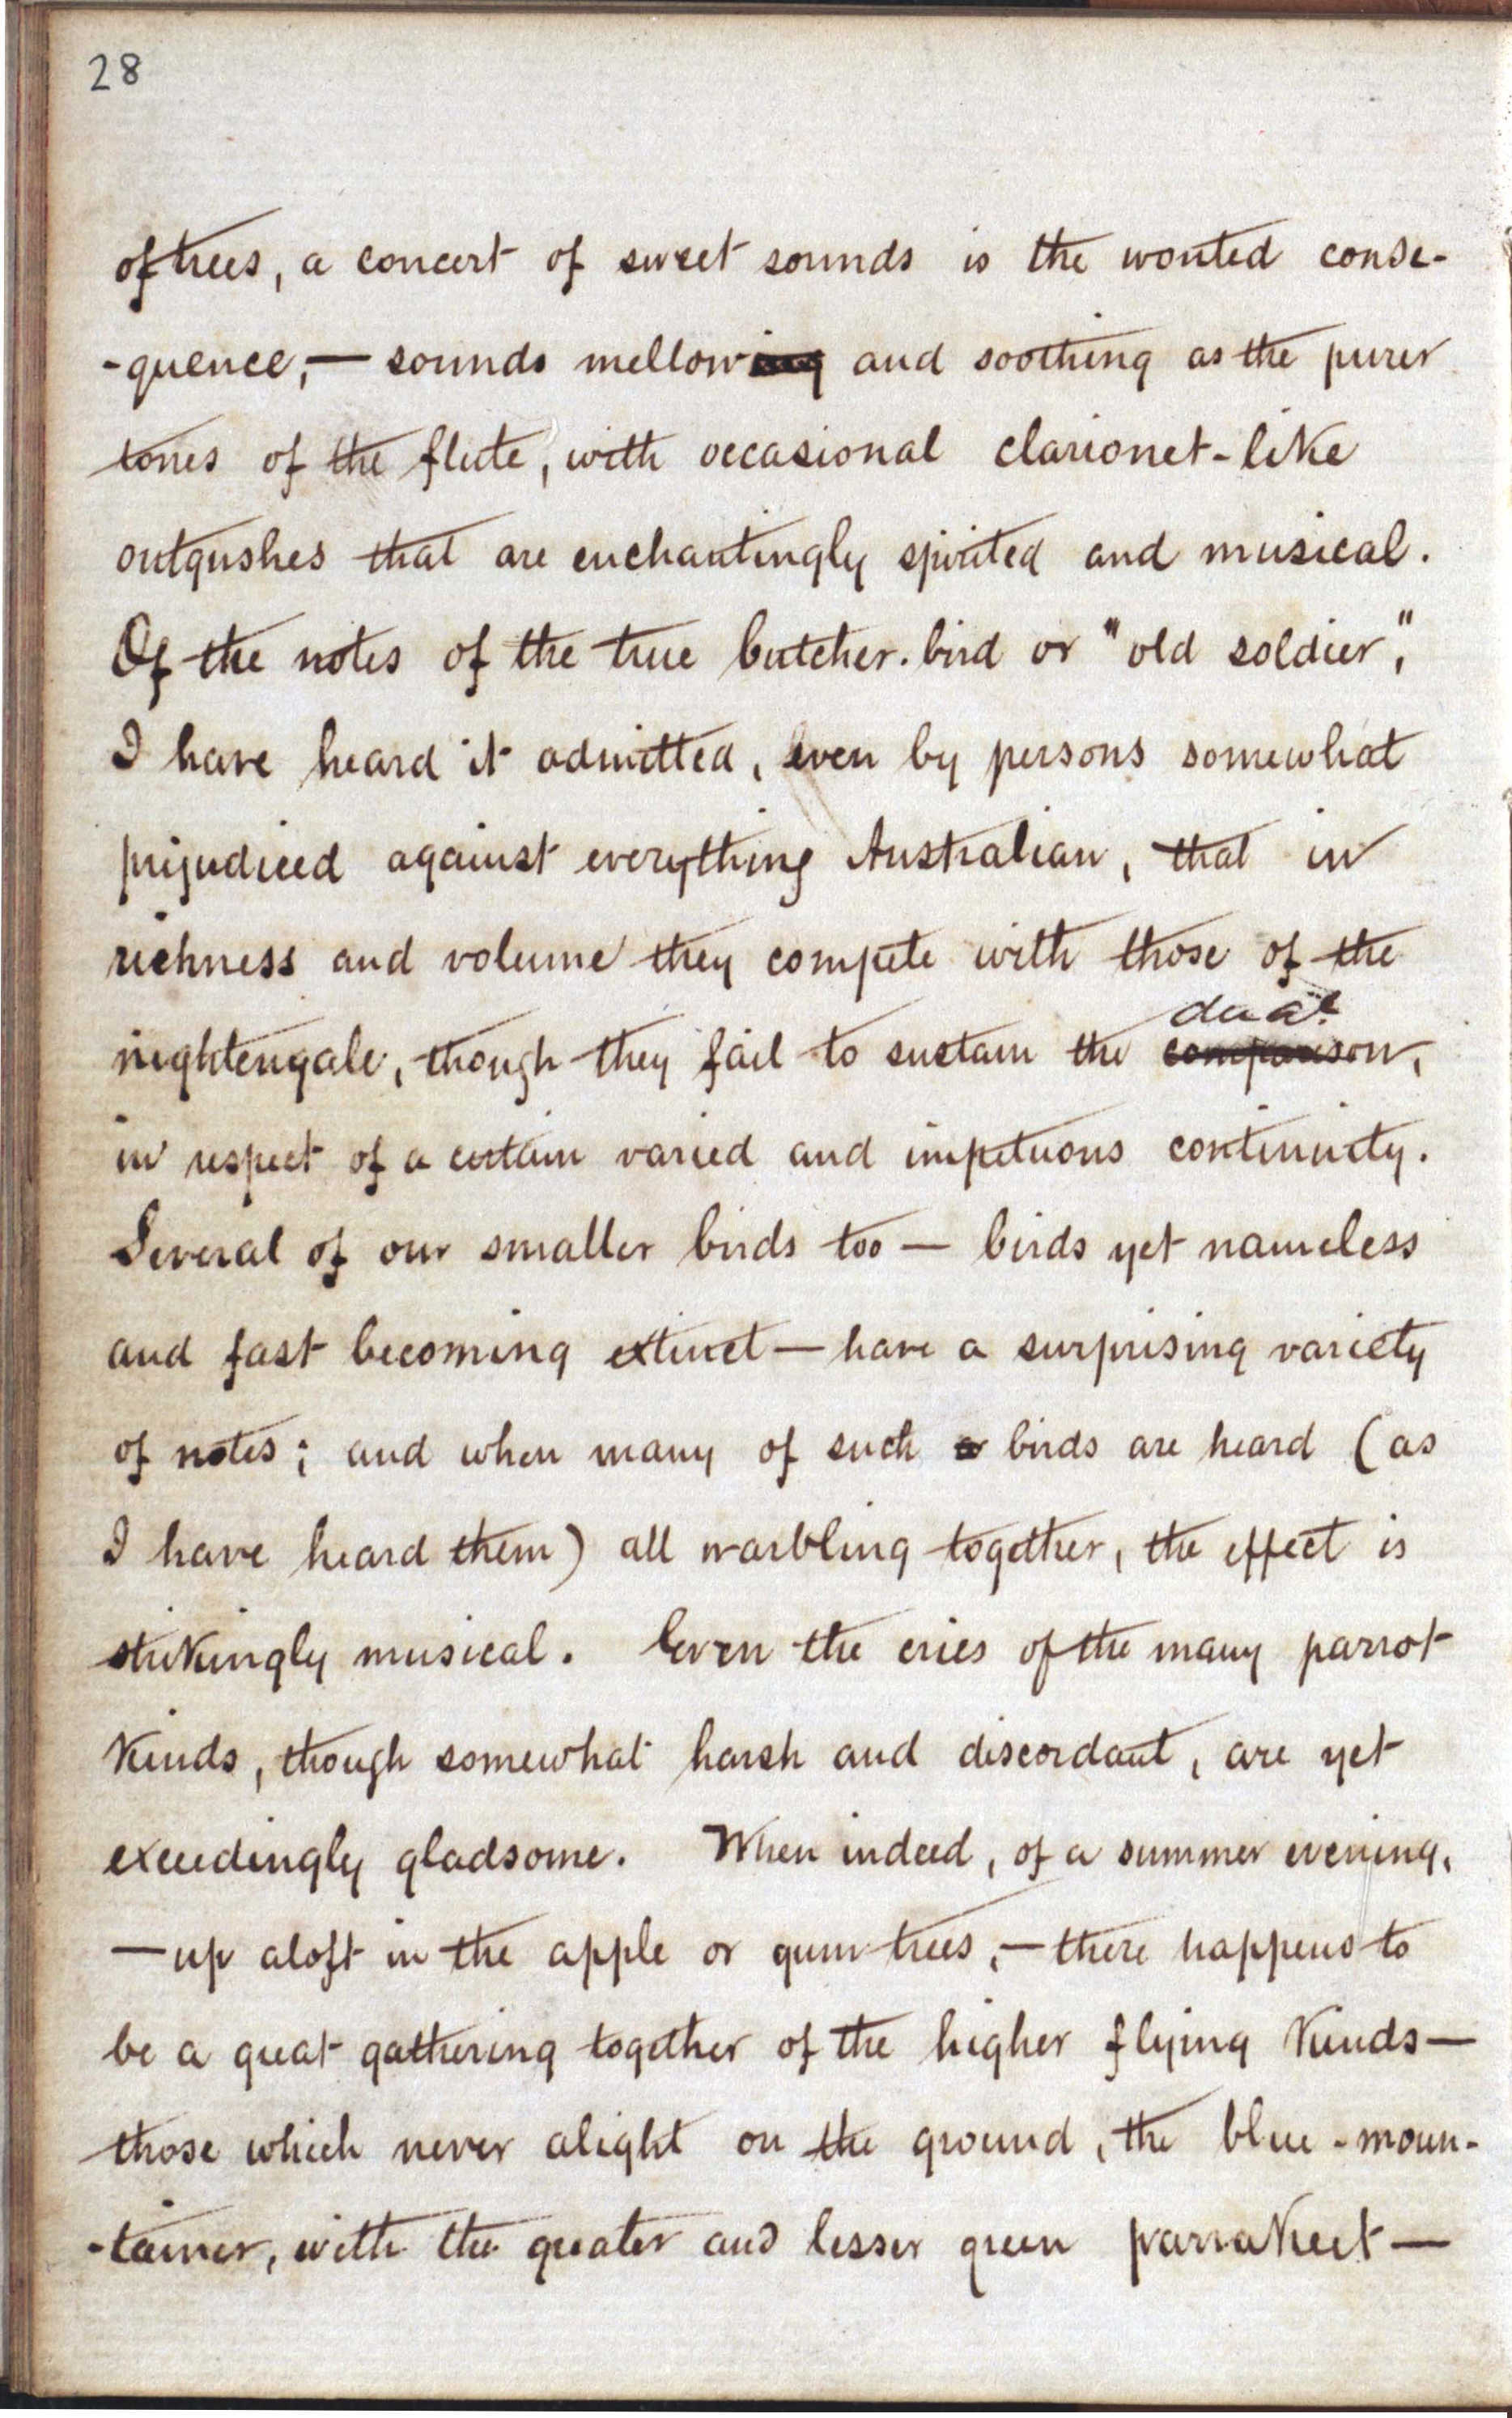 28
of trees, a concert of sweet sounds is the wonted conse-
-quence,— sounds mellowing and soothing as the purer
tones of the flute, with occasional clarionet-like
outgushes that are enchantingly spirited and musical.
Of the notes of the true butcher-bird or "old soldier",
I have heard it admitted, even by persons somewhat
prejudiced against everything Australian, that in
richness and volume they compete with those of the
dual
nightengale, though they fail to sustain the comparison,
in respect of a certain varied and impetuous continuity.
Several of our smaller birds too — birds yet nameless
and fast becoming extinct — have a surprising variety
of notes; and when many of such a birds are heard (as
I have heard them) all warbling together, the effect is
strikingly musical. Even the cries of the many parrot
kinds, though somewhat harsh and discordant, are yet
exceedingly gladsome. When indeed, of a summer evening,
— up aloft in the apple or gum trees, — there happens to
be a great gathering together of the higher flying kinds —
those which never alight on the ground, the blue-moun-
-tainer, with the greater and lesser green parrakeet —